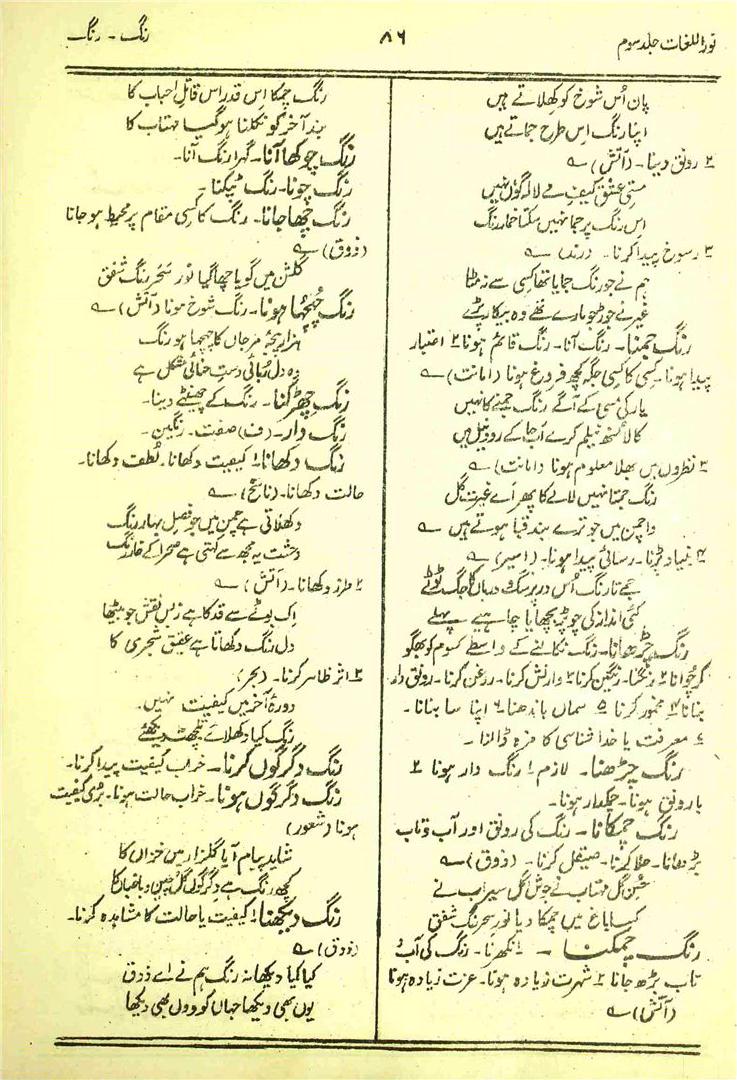 نوراللغات جلد سوم
۸۶
رنگ - رنگ
پان اُس شوخ کو کھلاتے ہیں
اپنا رنگ اِس طرح جماتے ہیں
۲ رونق دینا۔ (آتش) ؎
مستیِ عشق کیف مے لالہ گوں نہیں
اِس رنگ پر جما نہیں سکتا خمار رنگ
۳ رسوخ پیدا کرنا۔ (رند) ؎
ہم نے جو رنگ جمایا تھا کسی سے نہ مٹا
غیر نے جوڑ جو مارے تھے وہ بیکار پڑے
رنگ جمنا۔ رنگ آنا۔ رنگ قائم ہونا ۲ اعتبار
پیدا ہونا۔ کسی کا کسی جگہ کچھ فروغ ہونا (امانت) ؎
یار کی مسی کے آگے رنگ جمنے کا نہیں
کالا منھ نیلم کرے اب جا کے رود نیل میں
۳ نظروں میں بھلا معلوم ہونا (امانت) ؎
رنگ جمتا نہیں لالے کا پھر اے غیرت گل
وا چمن میں جو ترے بند قبا ہوتے ہیں
۴ بنیاد پڑنا۔ رسائی پیدا ہونا۔ (امیر) ؎
جمے تا رنگ اُس در پر سگ و درباں کا جگ ٹوٹے
کئی انداز کی چوپڑ بچھایا چاہیے پہلے
رنگ چڑھانا۔ رنگ نکالنے کے واسطے کسوم کو بھگو
کر چوانا ۲ رنگنا۔ رنگین کرنا ۳ وارنش کرنا۔ روغن کرنا۔ رونق دار
بنانا ۴ مخمور کرنا ۵ سماں باندھنا ۶ اپنا سا بنانا۔
۷ معرفت یا خدا شناسی کا مزہ ڈالنا۔
رنگ چڑھنا۔ لازم ۱ رنگ دار ہونا ۲
بارونق ہونا۔ چمکدار ہونا۔
رنگ چمکانا۔ رنگ کی رونق اور آب و تاب
بڑھانا۔ جلا کرنا۔ صیقل کرنا۔ (ذوق) ؎
حُسن گل مہتاب نے جوش گل سیراب نے
کیا باغ میں چمکا دیا نور سحر رنگ شفق
رنگ چمکنا۔ ۱ نکھرنا۔ رنگ کی آب و
تاب بڑھ جانا ۲ شہرت زیادہ ہونا۔ عزت زیادہ ہونا
(آتش) ؎
رنگ چمکا اِس قدر اس قاتل احباب کا
بند آخر کو نکلنا ہو گیا مہتاب کا
رنگ چوکھا آنا۔ گہرا رنگ آنا۔
رنگ چونا۔ رنگ ٹپکنا۔
رنگ چھا جانا۔ رنگ کا کسی مقام پر محیط ہو جانا
(ذوق) ؎
گلشن میں گویا چھا گیا نور سحر رنگ شفق
رنگ چُہچُہا ہونا۔ رنگ شوخ ہونا (آتش) ؎
ہزار پنجۂ مرجاں کا چہچہا ہو رنگ
وہ دل رُبائی دست حنائی مشکل ہے
رنگ چھڑکنا۔ رنگ کے چھینٹے دینا۔
رنگ دار۔ (ف) صفت۔ رنگین۔
رنگ دکھانا ۱ کیفیت دکھانا۔ لُطف دکھانا۔
حالت دکھانا۔ (ناسخ) ؎
دکھلاتی ہے چمن میں جو فصل بہار رنگ
وحشت یہ مجھ سے کہتی ہے صحرا کے خار رنگ
۲ طرز دکھانا۔ (آتش) ؎
اِک بوٹے سے قد کا ہے زبس نقش جو بیٹھا
دل رنگ دکھاتا ہے عقیق شجری کا
۳ اثر ظاہر کرنا۔ (بحر)
دورۂ آخر میں کیفیت نہیں
رنگ کیا دکھلائے تلچھٹ دیکھئے
رنگ دگرگوں کرنا۔ خراب کیفیت پیدا کرنا۔
رنگ دگرگوں ہونا۔ خراب حالت ہونا۔ بُری کیفیت
ہونا (شعور)
شاید پیام آیا گلزار میں خزاں کا
کچھ رنگ ہے دگرگوں گلچین و باغباں کا
رنگ دیکھنا ۱ کیفیت یا حالت کا مشاہدہ کرنا۔
(ذوق) ؎
کیا کیا دیکھا نہ رنگ ہم نے اے ذوق
یوں بھی دیکھا جہاں کو ووں بھی دیکھا